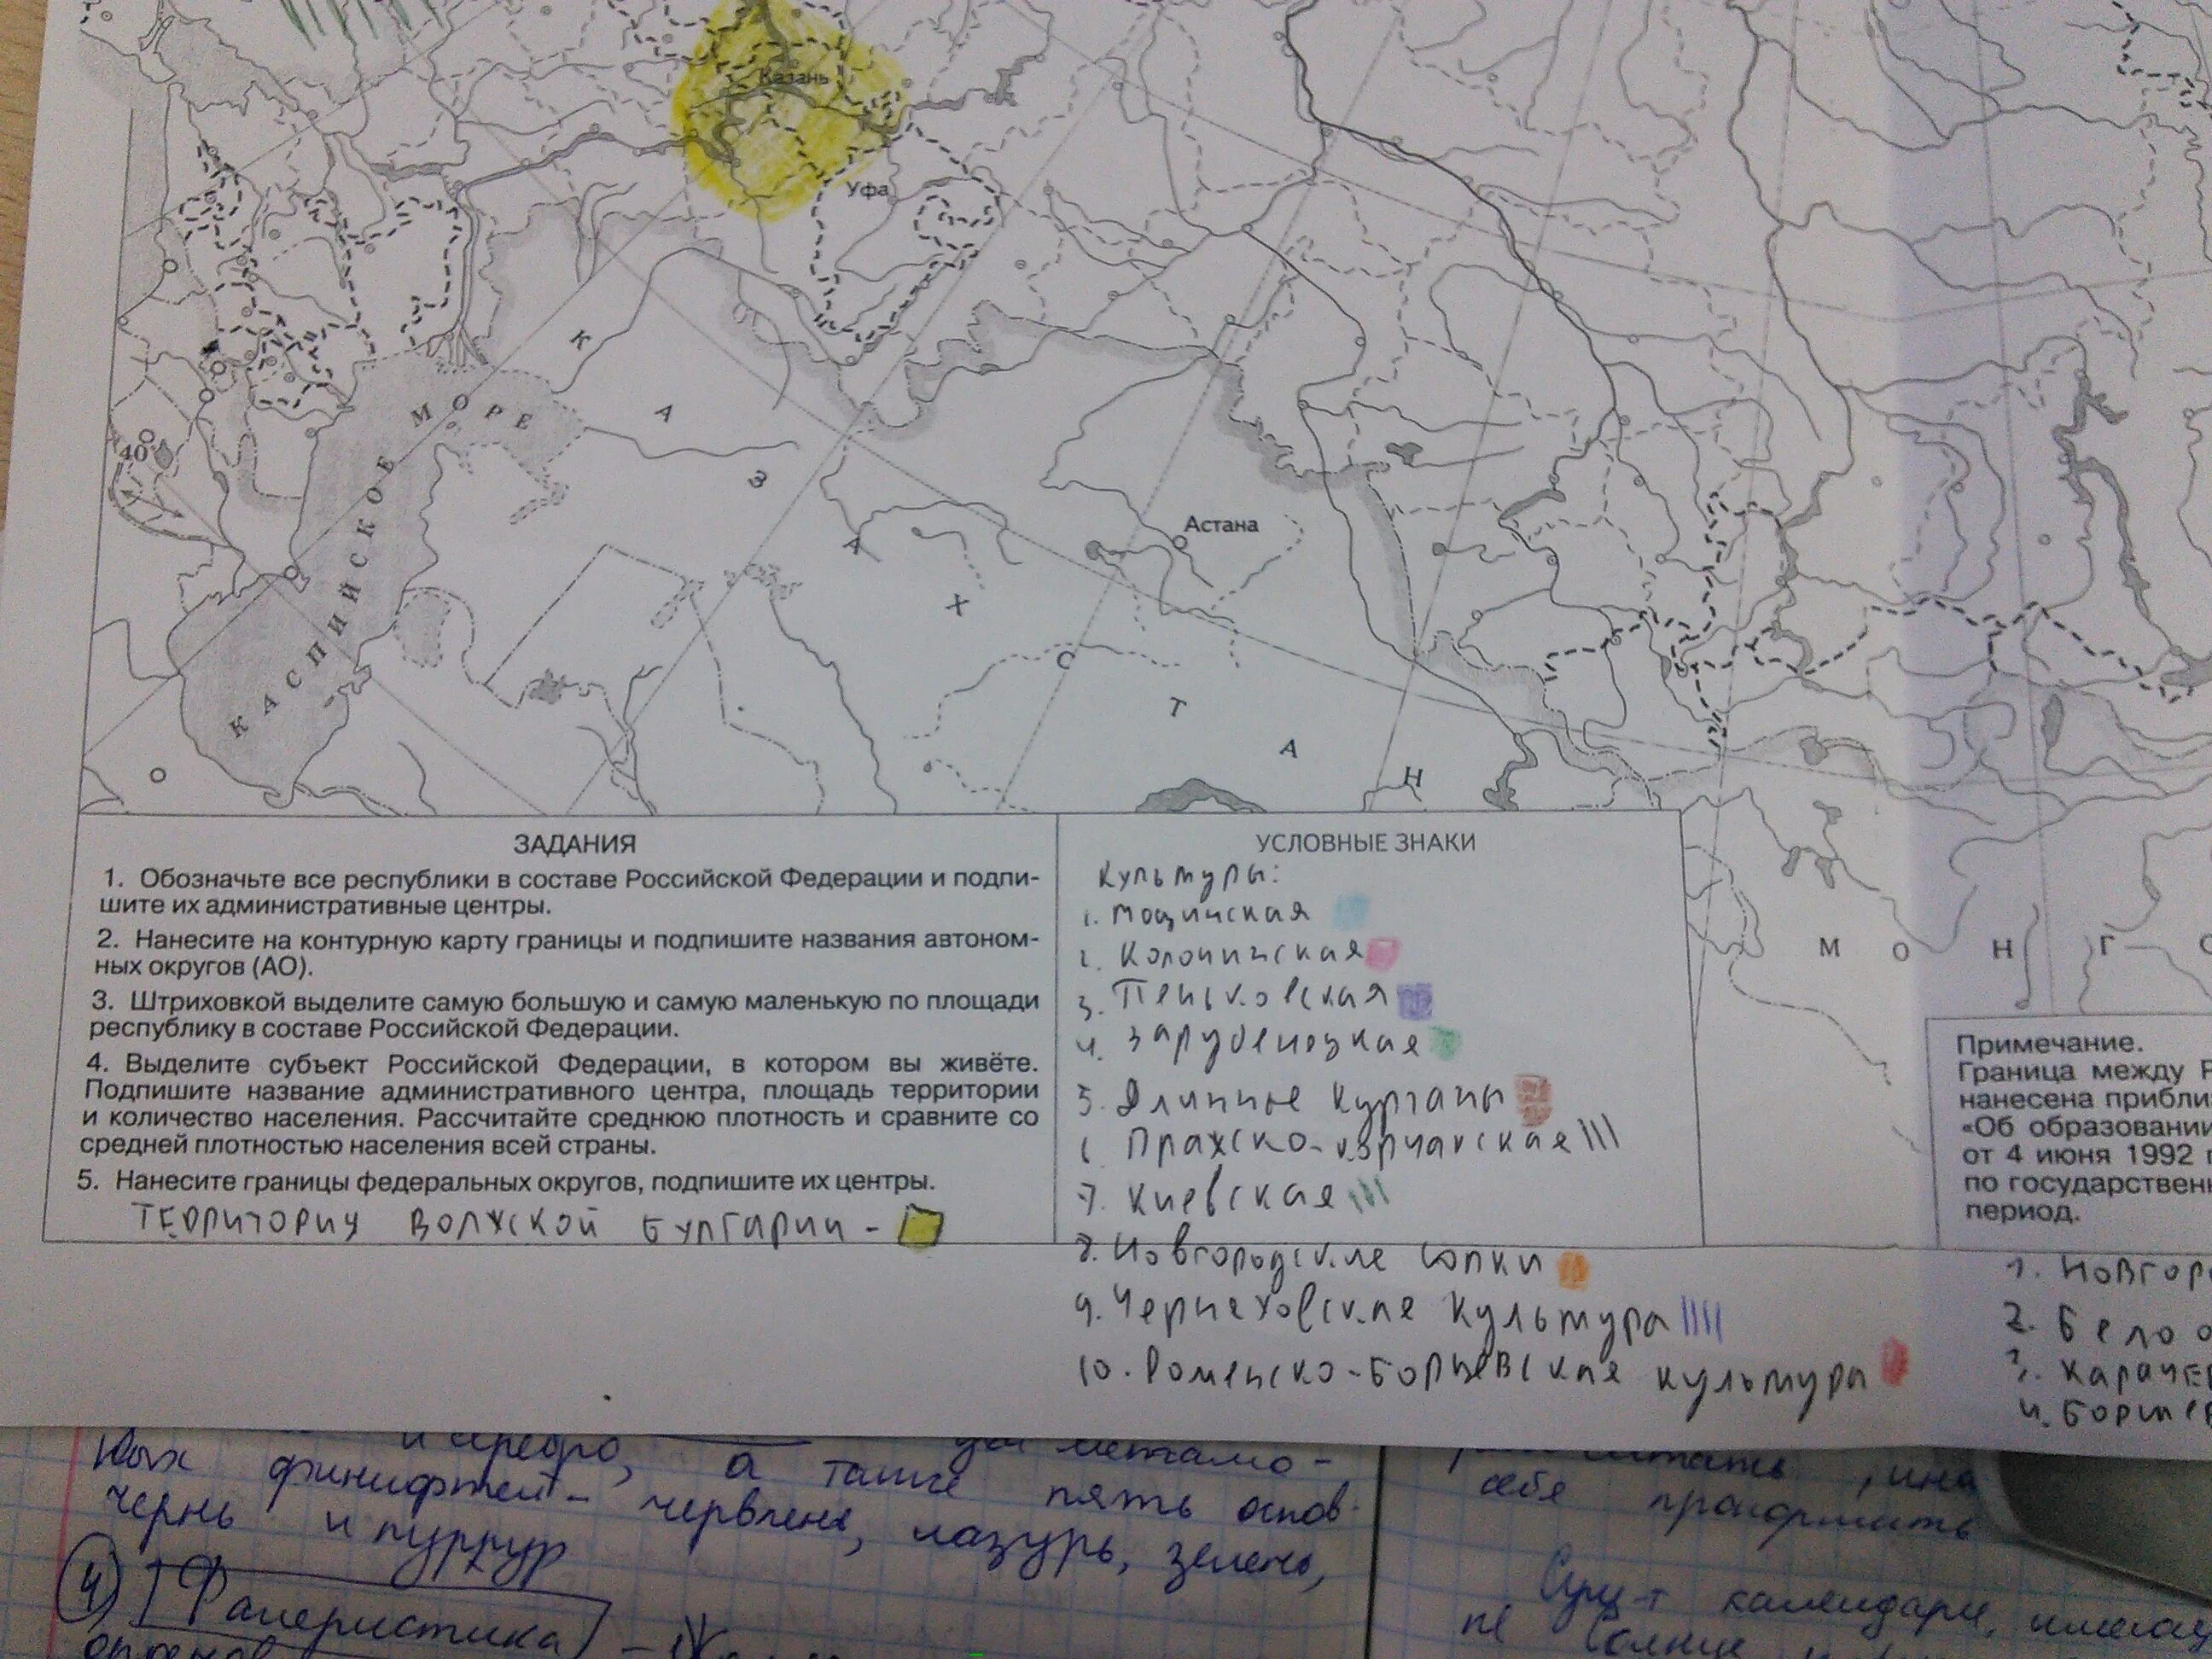 Казань
Уфа
КАЗАХСТАН
КАСПИЙСКОЕ МОРЕ
40°
Астана
МОНГО
ЗАДАНИЯ
1. Обозначьте все республики в составе Российской Федерации и подпи-
шите их административные центры.
2. Нанесите на контурную карту границы и подпишите названия автоном-
ных округов (АО).
3. Штриховкой выделите самую большую и самую маленькую по площади
республику в составе Российской Федерации.
4. Выделите субъект Российской Федерации, в котором вы живёте.
Подпишите название административного центра, площадь территории
и количество населения. Рассчитайте среднюю плотность и сравните со
средней плотностью населения всей страны.
5. Нанесите границы федеральных округов, подпишите их центры.
ТЕРРИТОРИЯ ВОЛЖСКОЙ БУЛГАРИИ -
УСЛОВНЫЕ ЗНАКИ
Культуры:
1. Мощинская
2. Колочинская
3. Пеньковская
4. Зарубенецкая
5. Длинные курганы
6 Пражско-корчакская
7. Киевская
8. Новгородские сопки
9. Черняховская культура
10. Роменско-Борщевская культура
Примечание.
Граница между Р
нанесена прибли
«Об образовании
от 4 июня 1992 г
по государствен
период.
1. Новгор
2. Бело о
3. Карачев
4. Борщев
и серебро,
ных финифтей - а также пять основ-
червлень, лазурь, зелень,
чернь и пурпур
4 Фалеристика
себе прокормить
календари,
не Солнце